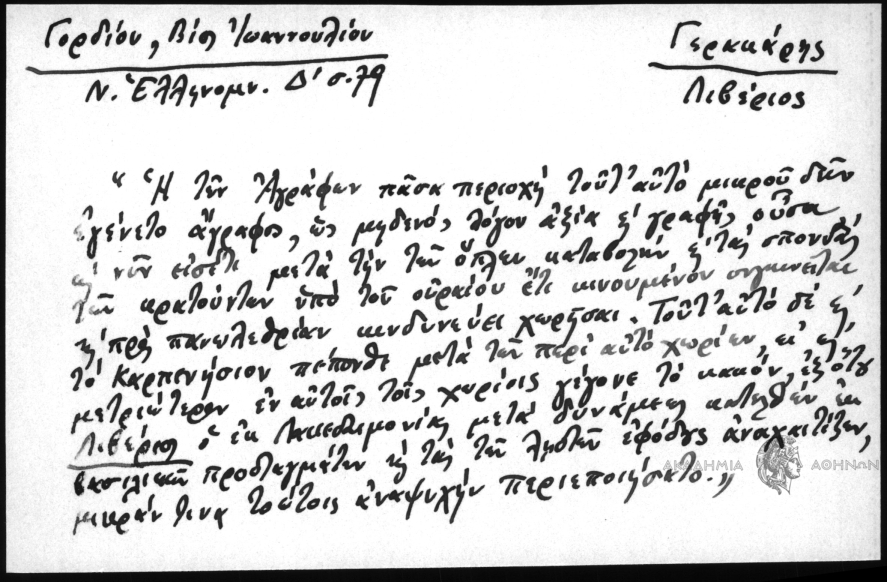 Γορδίου, Βίος Ἰωαννουλίου
Ν. Ἑλληνομν. Δ' σ. 79
Γερακάρης
Λιβέριος
" Ἡ τῶν Ἀγράφων πᾶσα περιοχὴ τοῦτ' αὐτὸ μικροῦ δεῖν
ἐγένετο ἄγραφος, ὡς μηδενὸς λόγου ἀξία ἢ γραφῆς οὖσα
καὶ νῦν εἰσέτι μετὰ τὴν τῶν ὅπλων καταβολὴν καὶ τὰς σπονδὰς
τῶν κρατούντων ὑπὸ τοῦ οὐραίου ἔτι κινουμένου
καὶ πρὸς πανωλεθρίαν κινδυνεύει χωρῆσαι. Τοῦτ' αὐτὸ δὲ καὶ
τὸ Καρπενήσιον πέπονθε μετὰ τῶν περὶ αὐτὸ χωρίων, εἰ καὶ
μετριώτερον ἐν αὐτοῖς τοῖς χωρίοις γέγονε τὸ κακόν, ἐξ ὅτου
Λιβέριος ὁ ἐκ Λακεδαιμονίας μετὰ δυνάμεως κατελθὼν ἐκ
βασιλικῶν προσταγμάτων καὶ τὰς τῶν λῃστῶν ἐφόδους ἀναχαιτίζων,
μικράν τινα τούτοις ἀναψυχὴν περιεποιήσατο. "
ΑΚΑΔΗΜΙΑ ΑΘΗΝΩΝ